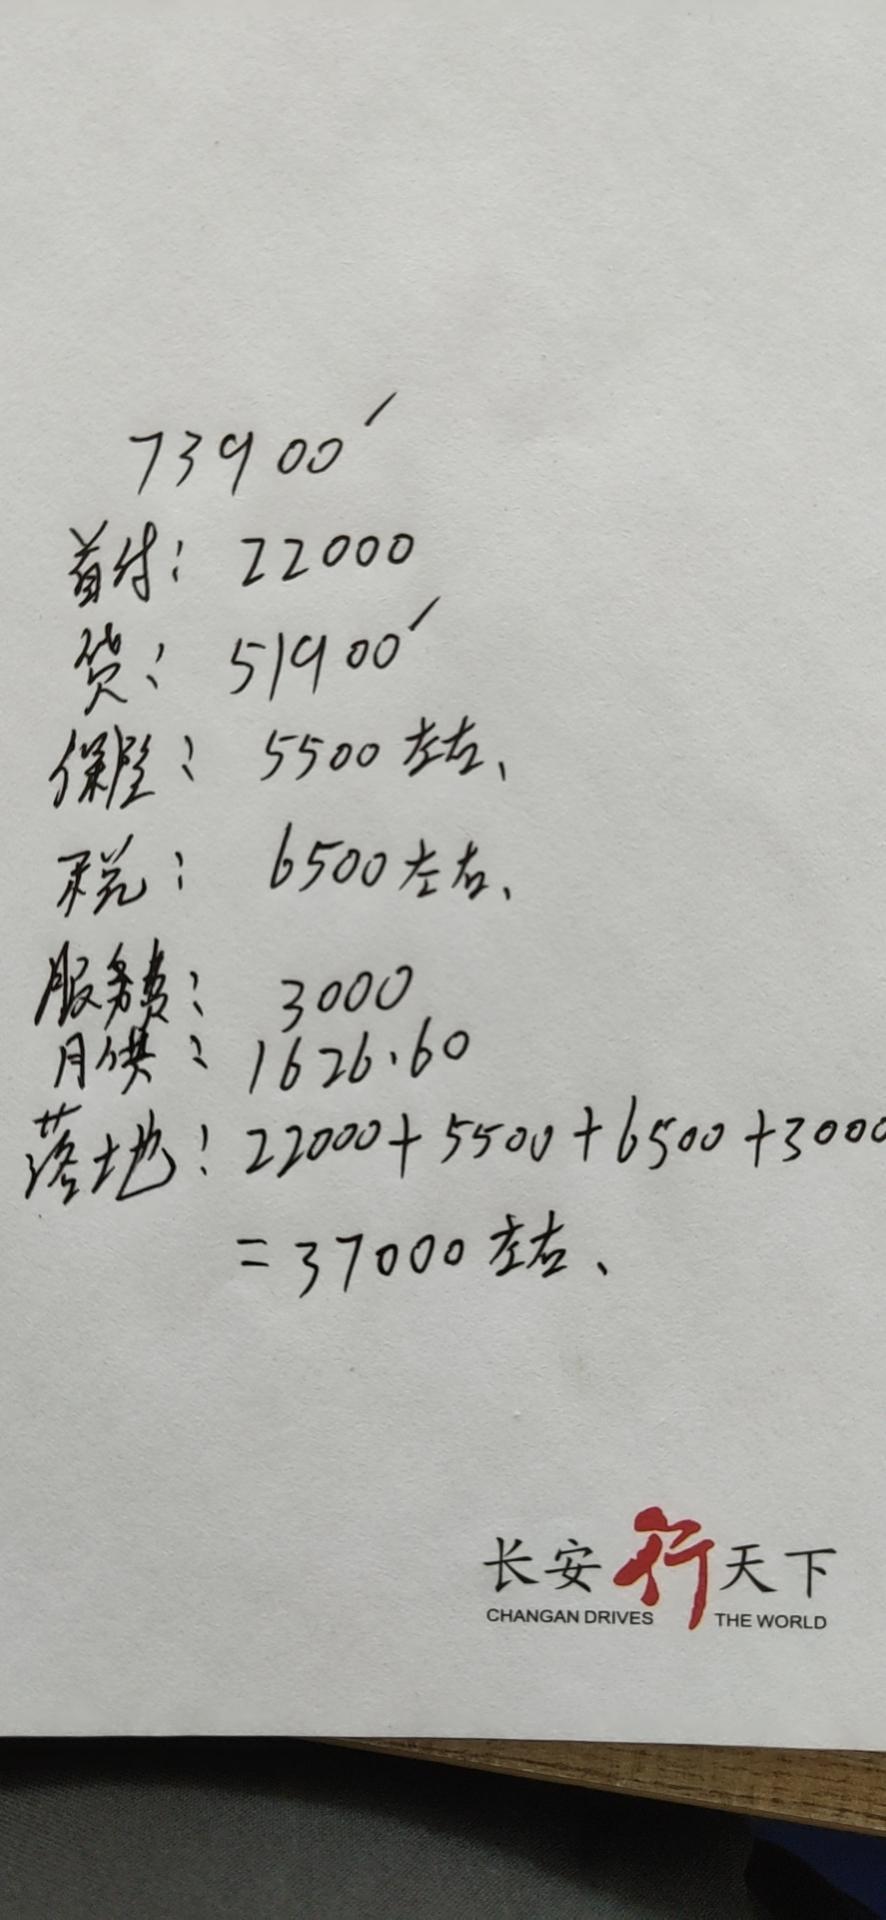 73900
首付：22000
贷：51900
保险：5500左右、
税：6500左右、
服务费：3000
月供：1626.60
落地：22000+5500+6500+3000
=37000左右、
长安行天下
CHANGAN DRIVES THE WORLD